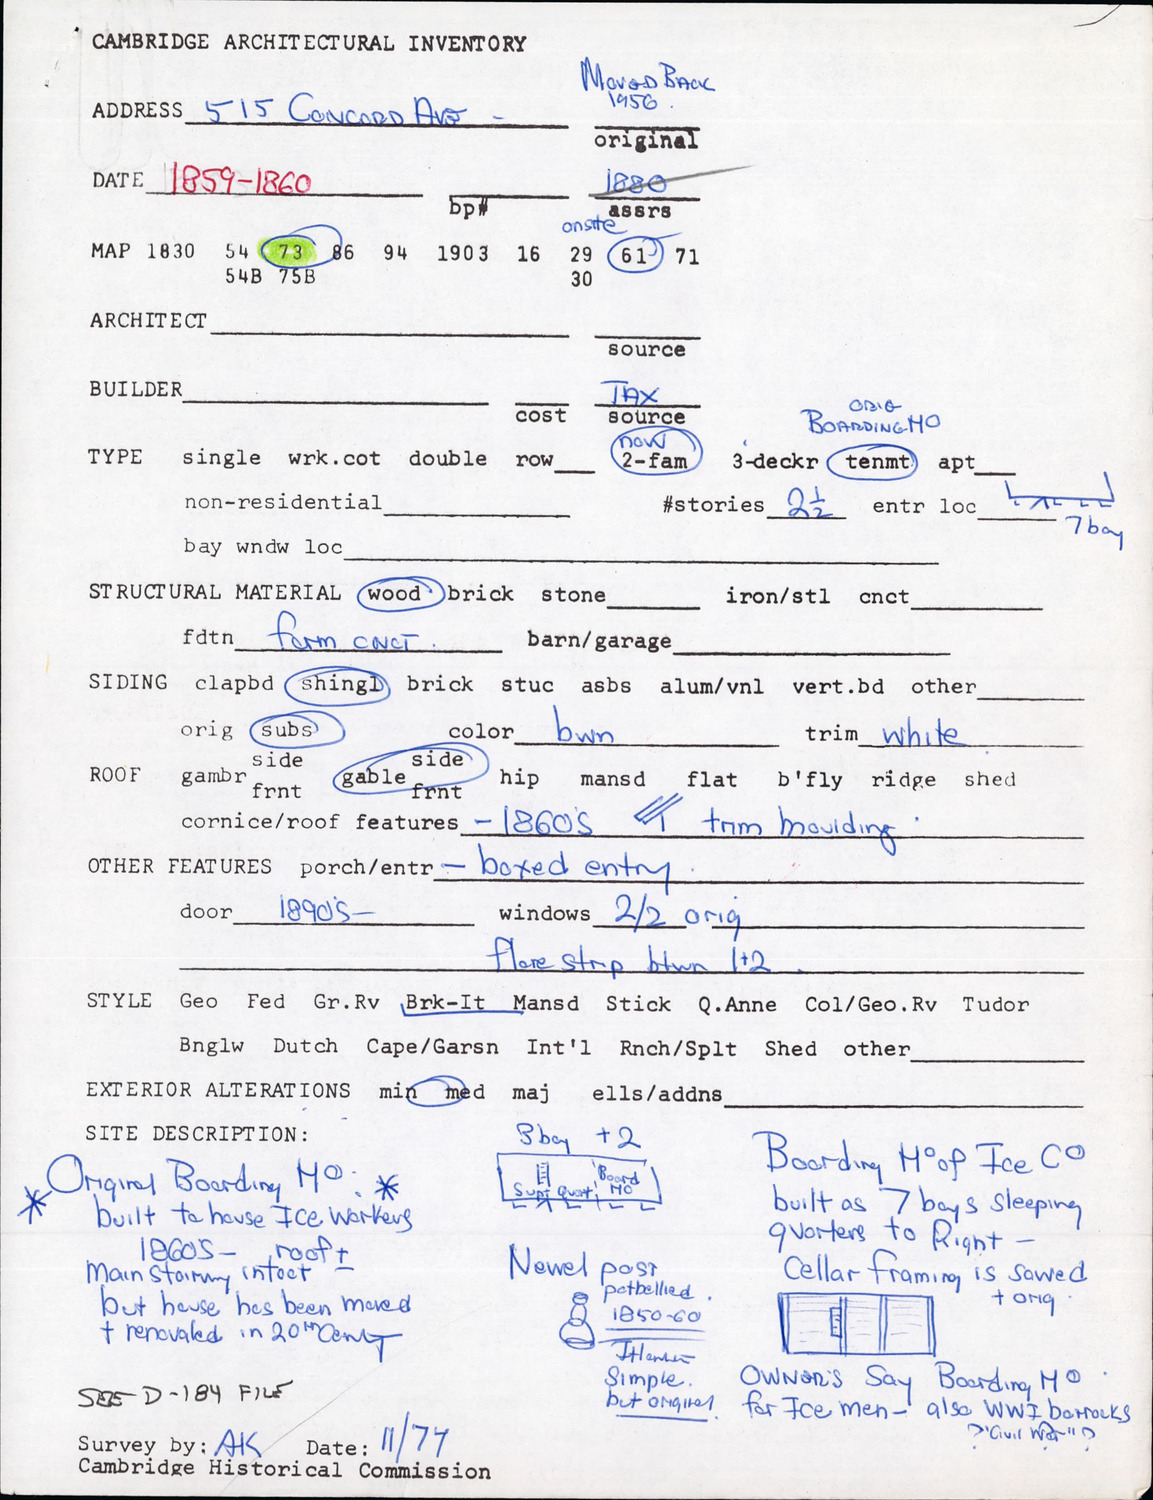 CAMBRIDGE ARCHITECTURAL INVENTORY
MOVED BACK
1956.
ADDRESS 515 CONCORD AVE -
original
DATE 1859-1860
1880
bp# assrs
onsite
MAP 1830 54 73 86 94 1903 16 29 61 71
54B 75B 30
ARCHITECT
source
BUILDER TAX
cost source
ORIG
BOARDING HO
now
TYPE single wrk.cot double row 2-fam 3-deckr tenmt apt
non-residential #stories 2½ entr loc
7 bay
bay wndw loc
STRUCTURAL MATERIAL wood brick stone iron/stl cnct
fdtn form cnct. barn/garage
SIDING clapbd shingl brick stuc asbs alum/vnl vert.bd other
orig subs color bwn trim white
side side
ROOF gambr gable hip mansd flat b'fly ridge shed
frnt frnt
cornice/roof features - 1860's trim moulding
OTHER FEATURES porch/entr - boxed entry.
door 1890's - windows 2/2 orig
flare strip btwn 1+2.
STYLE Geo Fed Gr.Rv Brk-It Mansd Stick Q.Anne Col/Geo.Rv Tudor
Bnglw Dutch Cape/Garsn Int'l Rnch/Splt Shed other
EXTERIOR ALTERATIONS min med maj ells/addns
SITE DESCRIPTION:
* Original Boarding HO: *
built to house Ice workers
1860's - roof ±
Main stairway intact -
but house has been moved
+ renovated in 20th Cent
SEE D-184 FILE
5 bay + 2
Board
Supt Quart HO
Newel post
potbellied.
1850-60
Simple.
but original.
Boarding Ho of Ice Co
built as 7 bays sleeping
quarters to Right -
Cellar framing is sawed
+ orig.
OWNER'S Say Boarding HO.
for Ice men - also WWI barracks
?"Civil War"?
Survey by: AK Date: 11/77
Cambridge Historical Commission